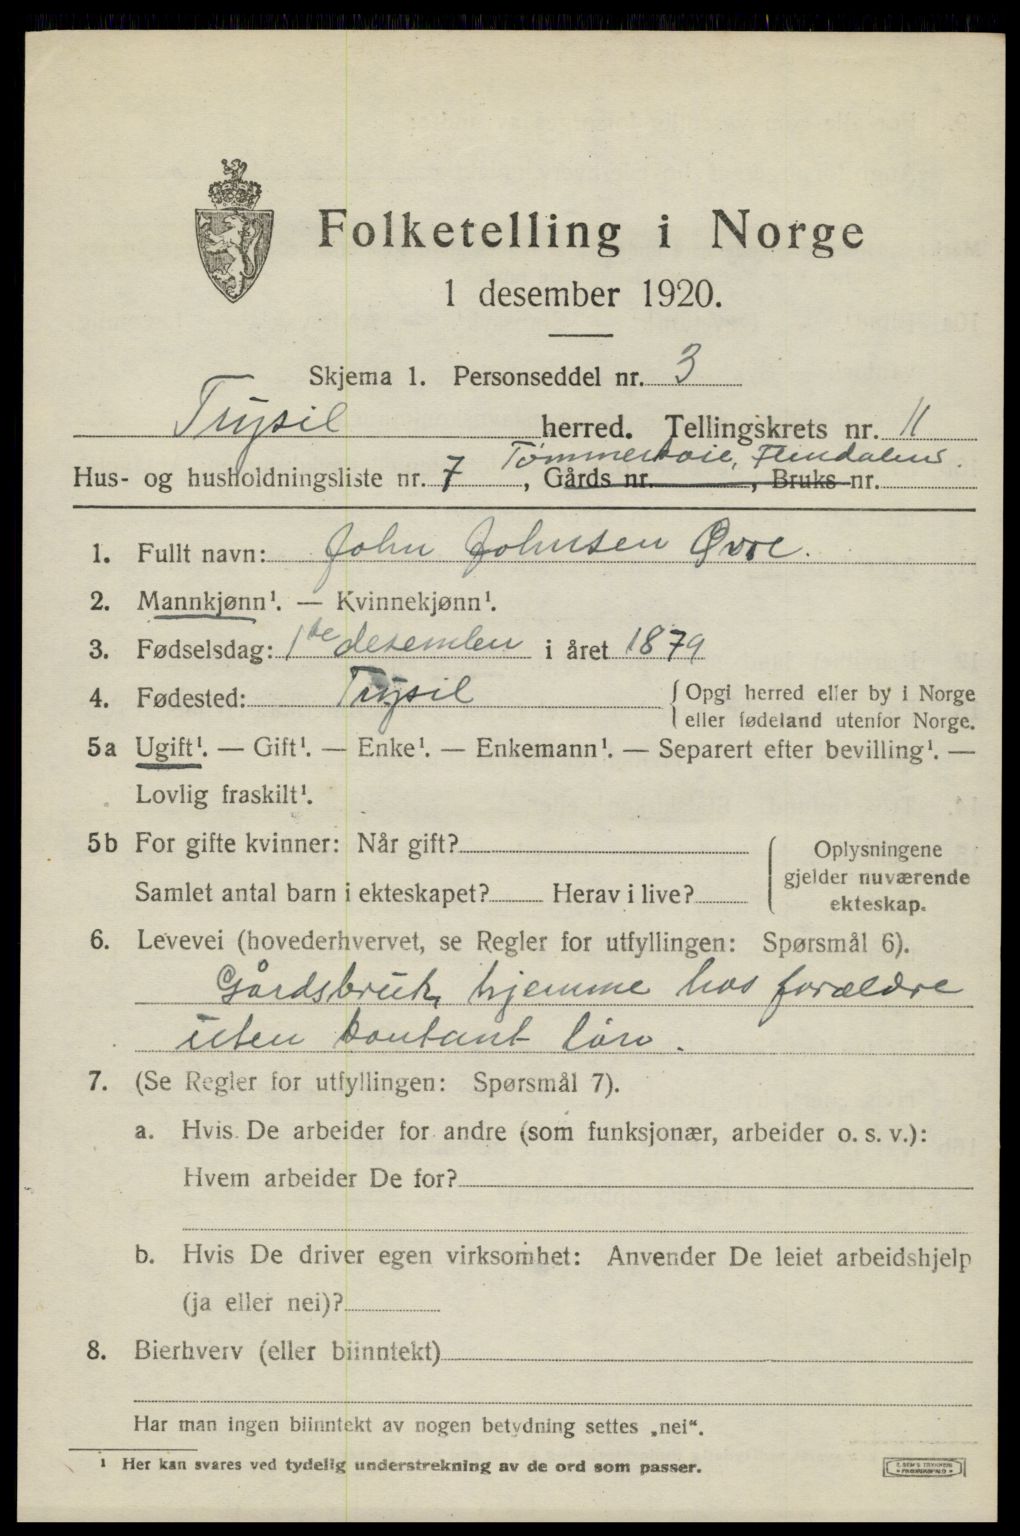 Folketelling i Norge
1 desember 1920.
Skjema 1. Personseddel nr. 3
Trysil herred. Tellingskrets nr. 11
Tømmerkoie,
Hus- og husholdningsliste nr. 7, Gårds nr. , Bruks nr.
1. Fullt navn: John Johnsen Øvre.
2. Mannkjønn¹. — Kvinnekjønn¹.
3. Fødselsdag: 1ste desember i året 1879
4. Fødested: Trysil Opgi herred eller by i Norge
eller fødeland utenfor Norge.
5a Ugift¹. — Gift¹. — Enke¹. — Enkemann¹. — Separert efter bevilling¹. —
Lovlig fraskilt¹.
5b For gifte kvinner: Når gift?
Samlet antal barn i ekteskapet? Herav i live?
Oplysningene
gjelder nuværende
ekteskap.
6. Levevei (hovederhvervet, se Regler for utfyllingen: Spørsmål 6).
Gårdsbruk, hjemme hos forældre
uten kontant lønn.
7. (Se Regler for utfyllingen: Spørsmål 7).
a. Hvis De arbeider for andre (som funksjonær, arbeider o. s. v.):
Hvem arbeider De for?
b. Hvis De driver egen virksomhet: Anvender De leiet arbeidshjelp
(ja eller nei)?
8. Bierhverv (eller biinntekt)
Har man ingen biinntekt av nogen betydning settes „nei“.
¹ Her kan svares ved tydelig understrekning av de ord som passer.